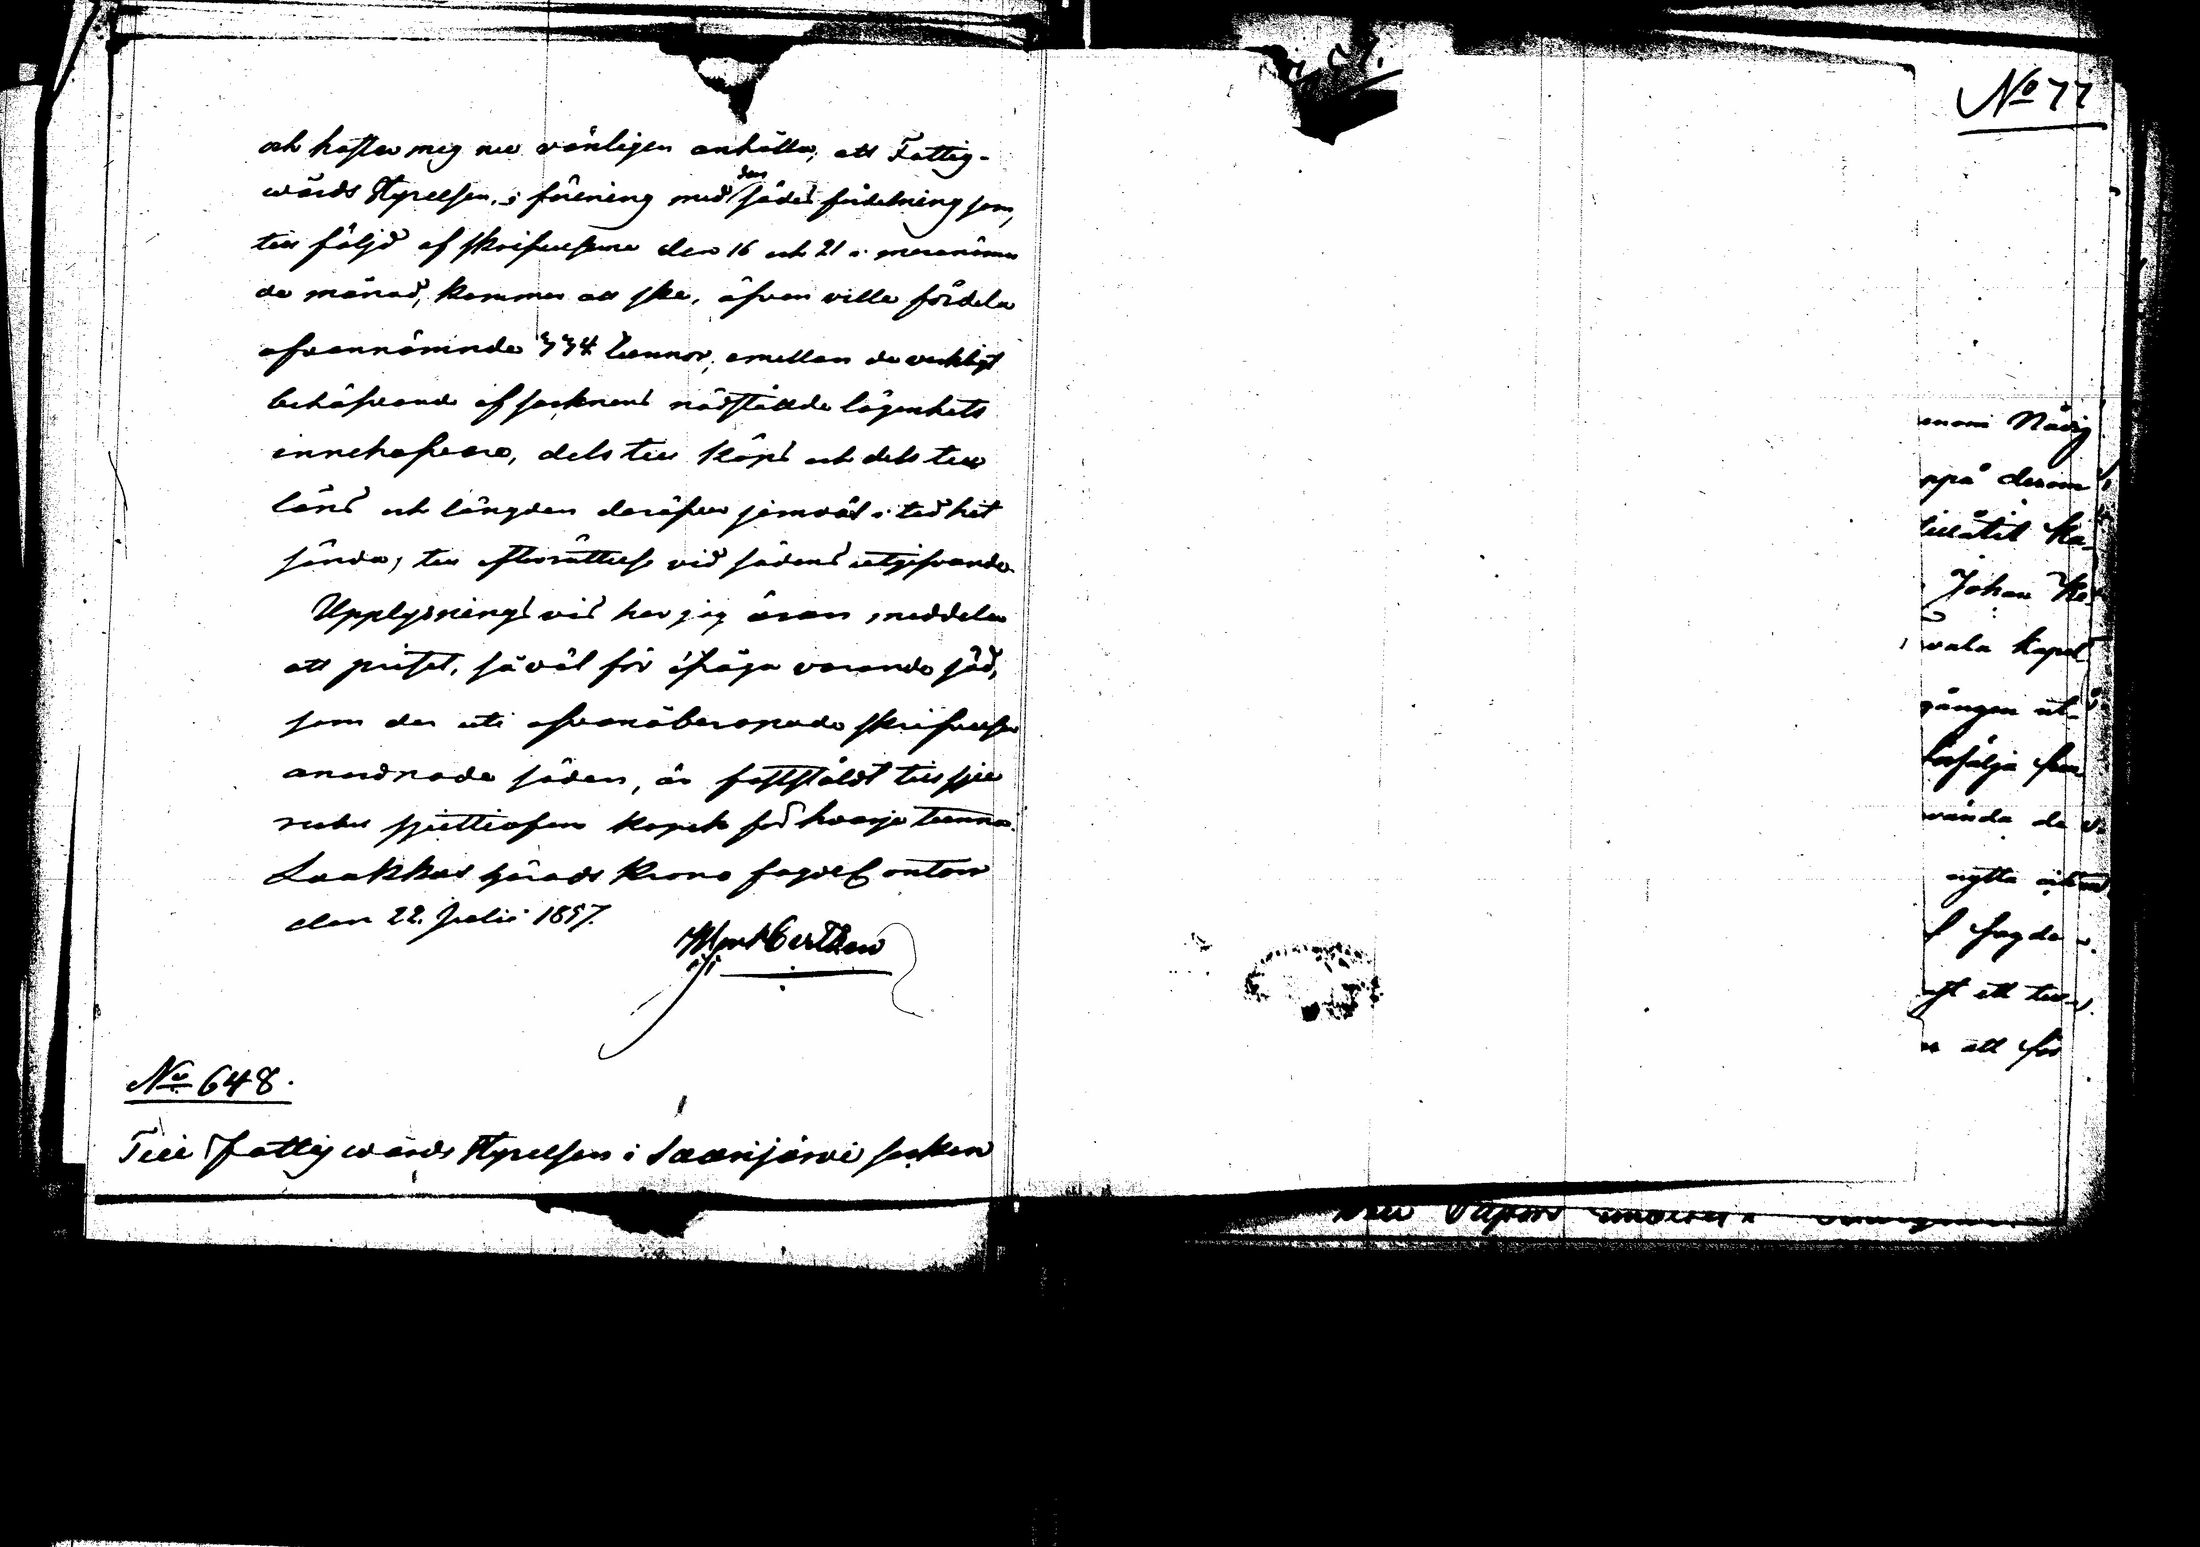 och haster mig nu vänligen anhålla, att Fattig-
wårds Styrelsen, i förening med den sädes fördelning som,
till följd af skrifvelserne den 16 och 21 i merenämn
de månad, kommer att ske, äfven ville fördela
ofvannämnde 334 tunnor, emellan de verkligt
behöfvande af socknens nödstälde lägenhets
innehafvare, dels till köps och dels till
låns och längden deröfver jemväl i tid hit
sända, till efterrättelse vid sädens utgifvande.
Upplysnings vis har jag äran meddela
att priset, såväl för ifråga varande säd,
som den uti ofvanåberopade skrifvelser
anordnade säden, är faststäldt till sju
rubel sjuttiofem kopek för hvarje tunna.
Laukkas härads Krono fogde Contor
den 22. Julii 1857.
No 648.
Till Fattigwårds Styrelsen i Saarijärvi socken
No 77
Nådig
uppå derom
tillåtit
Johan
kapel
gången
försälja
vända de
nytta
fogde
att till
att för